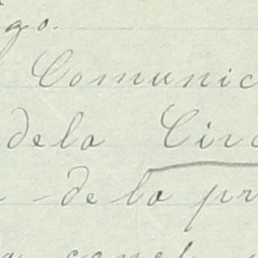 go.
Comunic
dela Circ
de la pr